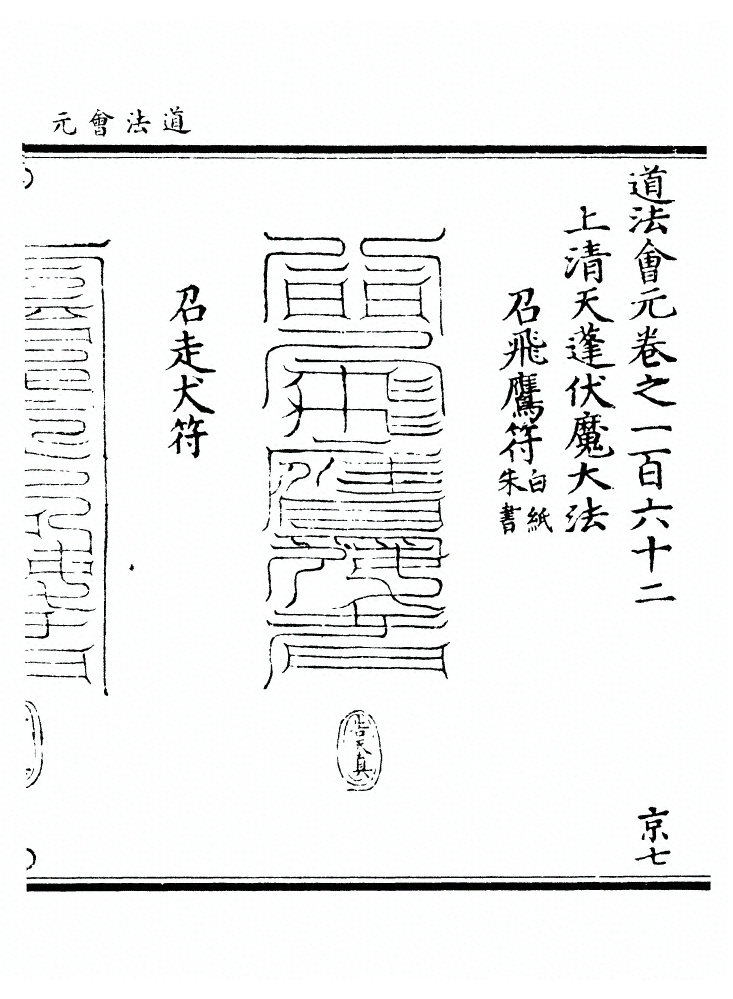 道法會元
道法會元卷之一百六十二
京七
上清天蓬伏魔大法
召飛鷹符
白紙
朱書
召走犬符